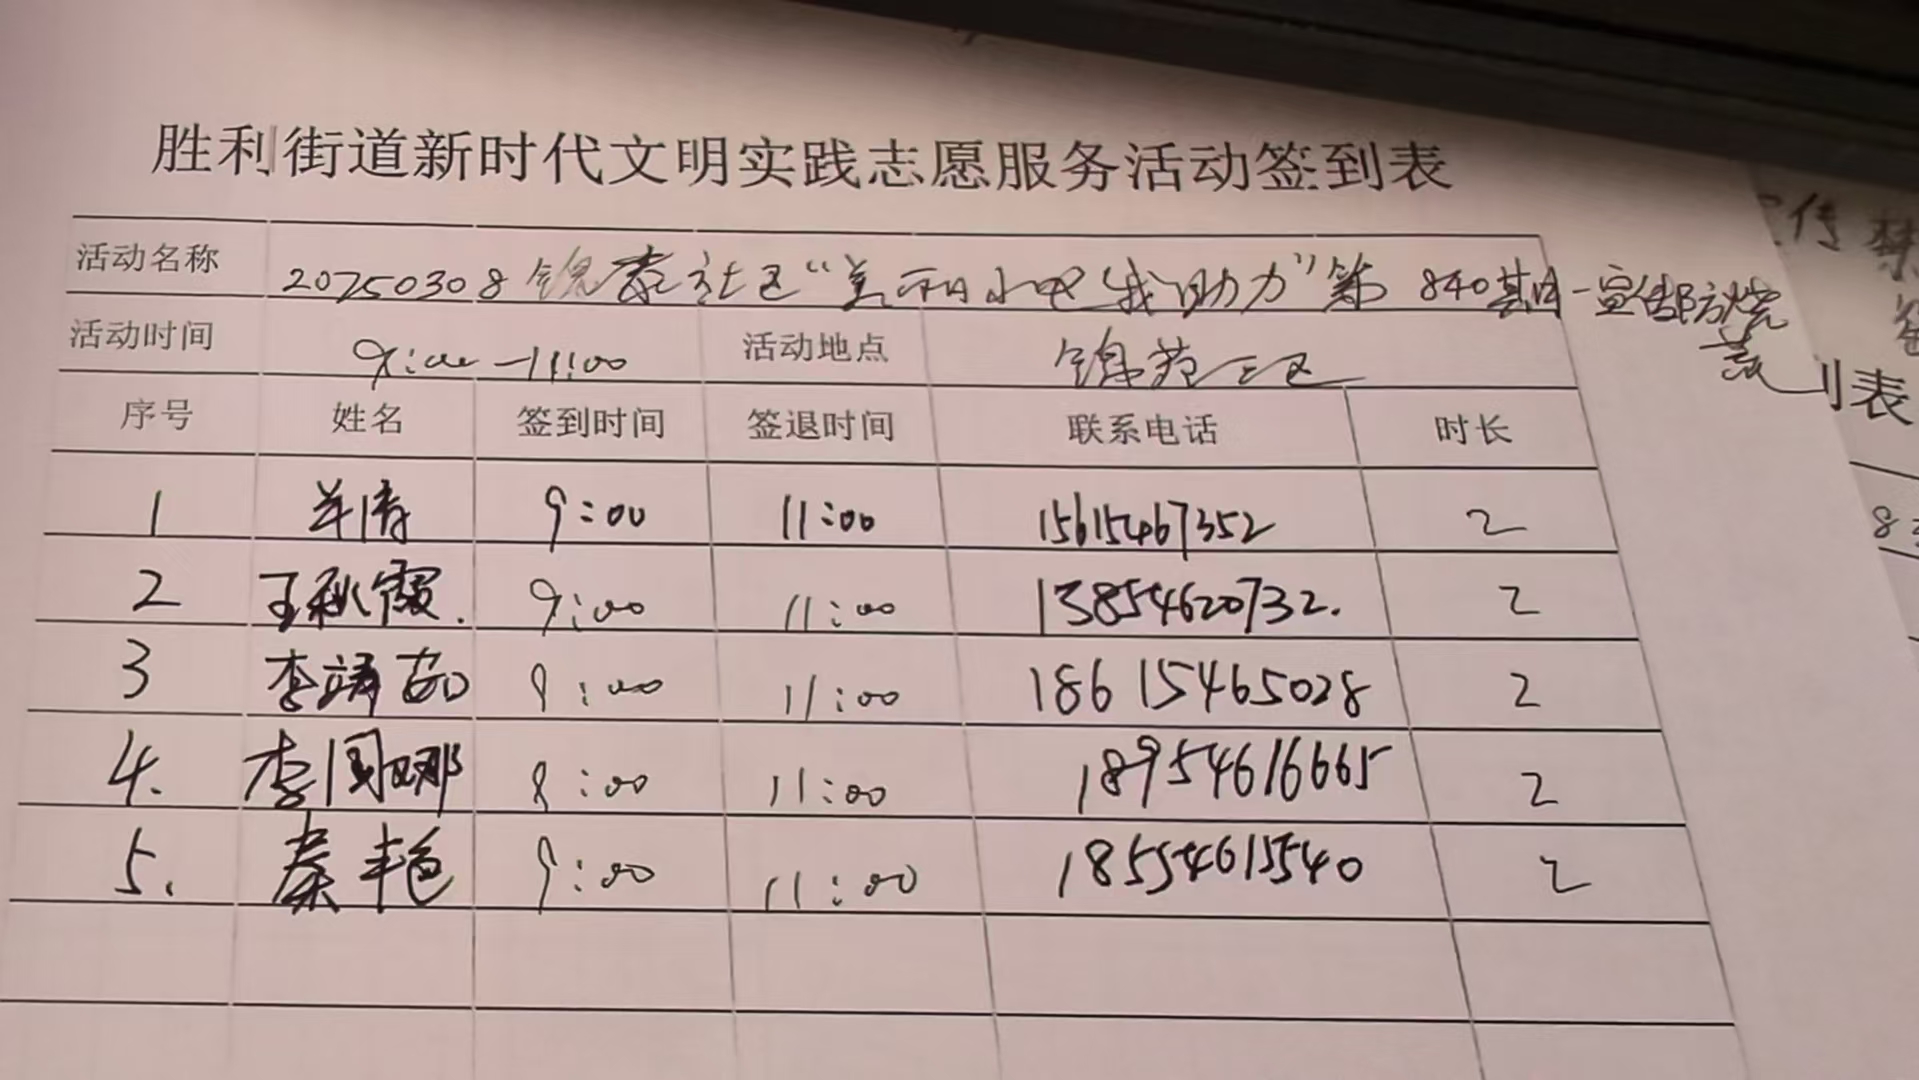 胜利街道新时代文明实践志愿服务活动签到表
活动名称 20250308锦苑社区“美丽小区我助力”第840期
活动时间 9:00-11:00 活动地点 锦苑三区
序号 姓名 签到时间 签退时间 联系电话 时长
1 9:00 11:00 15615467352 2
2 王秋霞. 9:00 11:00 13854620732. 2
3 李靖茹 9:00 11:00 18615465028 2
4. 李国娜 9:00 11:00 18954616665 2
5. 秦丰艳 9:00 11:00 18554615540 2
传 禁
到表
8